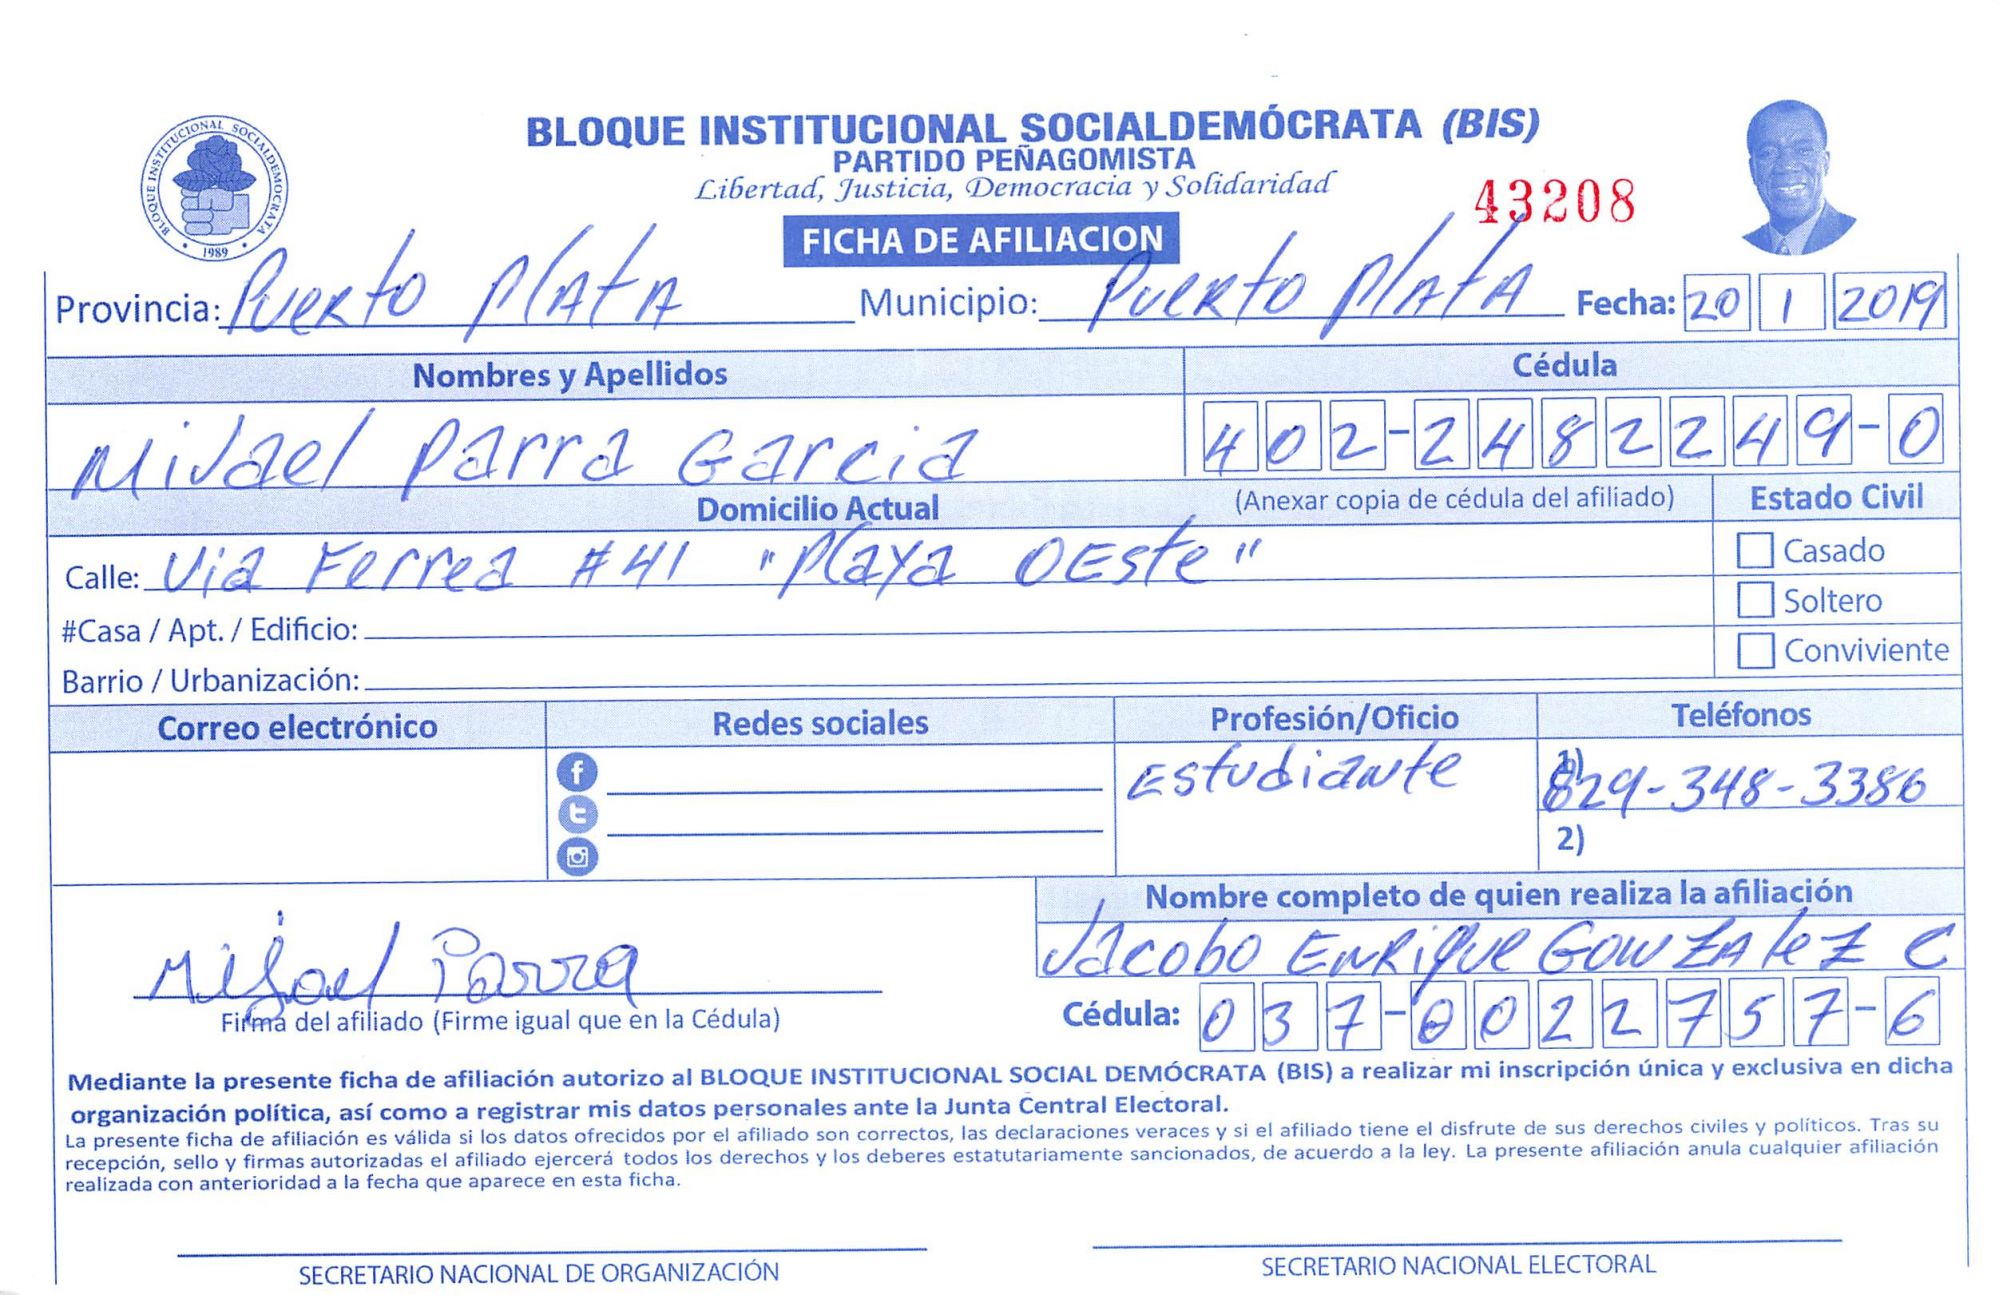 BLOQUE INSTITUCIONAL SOCIALDEMÓCRATA
1989
BLOQUE INSTITUCIONAL SOCIALDEMÓCRATA (BIS)
PARTIDO PEÑAGOMISTA
Libertad, Justicia, Democracia y Solidaridad
43208
FICHA DE AFILIACION
Provincia: Puerto Plata Municipio: Puerto Plata Fecha: 20 1 2019
Nombres y Apellidos Cédula
Mijael Parra Garcia 402-2482249-0
Domicilio Actual (Anexar copia de cédula del afiliado) Estado Civil
Calle: Via Ferrea #41 "Playa OEste" Casado
#Casa / Apt. / Edificio: Soltero
Barrio / Urbanización: Conviviente
Correo electrónico Redes sociales Profesión/Oficio Teléfonos
Estudiante 1) 829-348-3386
2)
Nombre completo de quien realiza la afiliación
Mijael Parra Jacobo Enrique Gonzalez C
Firma del afiliado (Firme igual que en la Cédula) Cédula: 037-0022757-6
Mediante la presente ficha de afiliación autorizo al BLOQUE INSTITUCIONAL SOCIAL DEMÓCRATA (BIS) a realizar mi inscripción única y exclusiva en dicha
organización política, así como a registrar mis datos personales ante la Junta Central Electoral.
La presente ficha de afiliación es válida si los datos ofrecidos por el afiliado son correctos, las declaraciones veraces y si el afiliado tiene el disfrute de sus derechos civiles y políticos. Tras su
recepción, sello y firmas autorizadas el afiliado ejercerá todos los derechos y los deberes estatutariamente sancionados, de acuerdo a la ley. La presente afiliación anula cualquier afiliación
realizada con anterioridad a la fecha que aparece en esta ficha.
SECRETARIO NACIONAL DE ORGANIZACIÓN SECRETARIO NACIONAL ELECTORAL